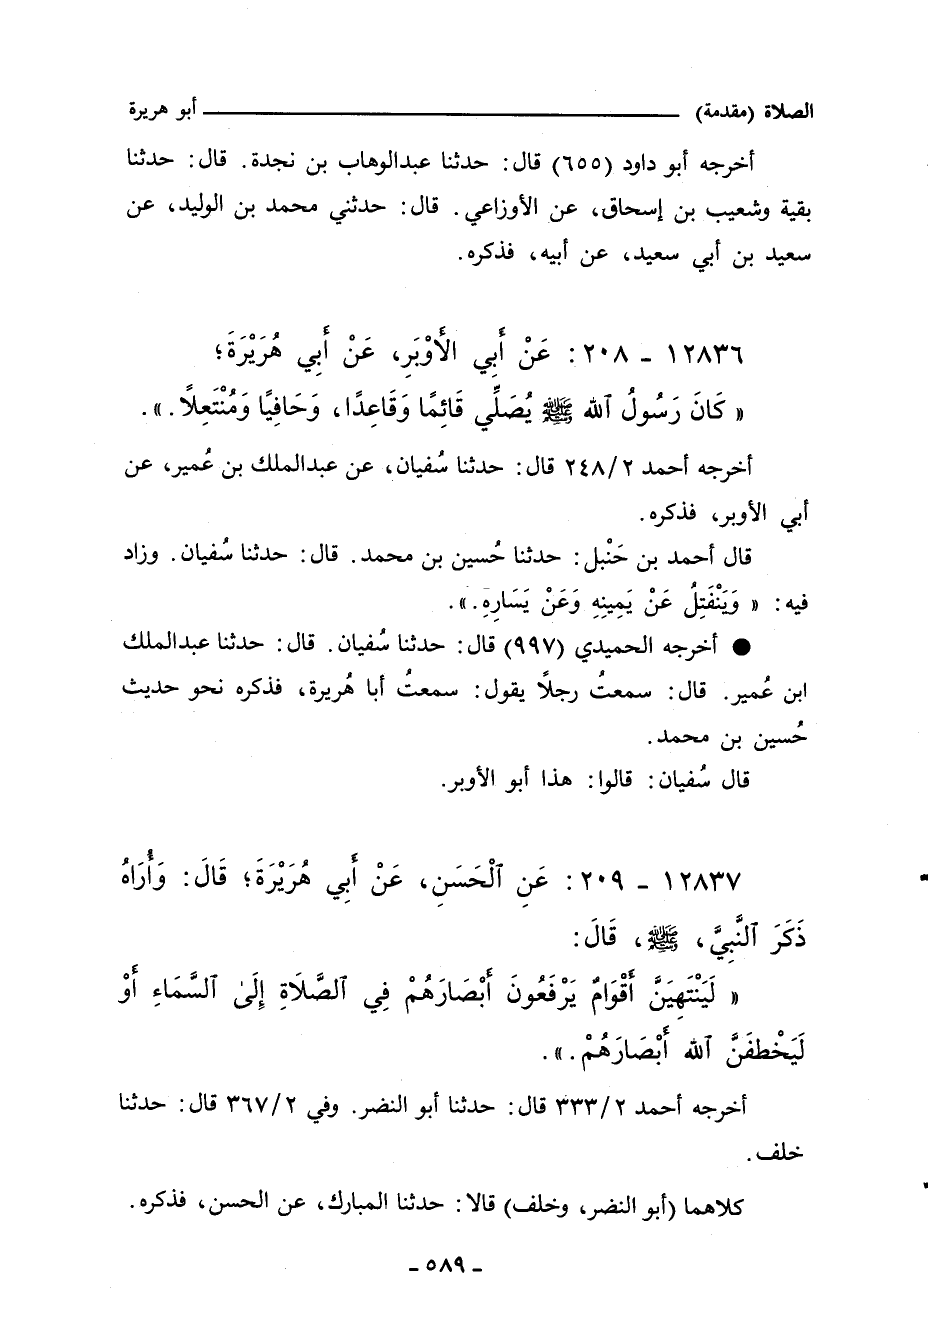 الصلاة (مقدمة) أبو هريرة
أخرجه أبو داود (٦٥٥) قال: حدثنا عبدالوهاب بن نجدة. قال: حدثنا
بقية وشعيب بن إسحاق، عن الأوزاعي. قال: حدثني محمد بن الوليد، عن
سعيد بن أبي سعيد، عن أبيه، فذكره.
١٢٨٣٦ - ٢٠٨: عَنْ أَبِي الأَوْبَرِ، عَنْ أَبِي هُرَيْرَةَ؛
« كَانَ رَسُولُ ٱللهِ ﷺ يُصَلِّي قَائِمًا وَقَاعِدًا، وَحَافِيًا وَمُنْتَعِلًا.».
أخرجه أحمد ٢٤٨/٢ قال: حدثنا سُفيان، عن عبدالملك بن عُمير، عن
أبي الأوبر، فذكره.
قال أحمد بن حَنْبل: حدثنا حُسين بن محمد. قال: حدثنا سُفيان. وزاد
فيه: « وَيَنْفَتِلُ عَنْ يَمِينِهِ وَعَنْ يَسَارِهِ.».
● أخرجه الحميدي (٩٩٧) قال: حدثنا سُفيان. قال: حدثنا عبدالملك
ابن عُمير. قال: سمعتُ رجلًا يقول: سمعتُ أبا هُريرة، فذكره نحو حديث
حُسين بن محمد.
قال سُفيان: قالوا: هذا أبو الأوبر.
١٢٨٣٧ - ٢٠٩: عَنِ ٱلْحَسَنِ، عَنْ أَبِي هُرَيْرَةَ؛ قَالَ: وَأُرَاهُ
ذَكَرَ ٱلنَّبِيَّ، ﷺ، قَالَ:
« لَيَنْتَهِيَنَّ أَقْوَامٌ يَرْفَعُونَ أَبْصَارَهُمْ فِي ٱلصَّلَاةِ إِلَىٰ ٱلسَّمَاءِ أَوْ
لَيَخْطَفَنَّ ٱللهُ أَبْصَارَهُمْ.».
أخرجه أحمد ٣٣٣/٢ قال: حدثنا أبو النضر. وفي ٣٦٧/٢ قال: حدثنا
خلف.
كلاهما (أبو النضر، وخلف) قالا: حدثنا المبارك، عن الحسن، فذكره.
- ٥٨٩ -